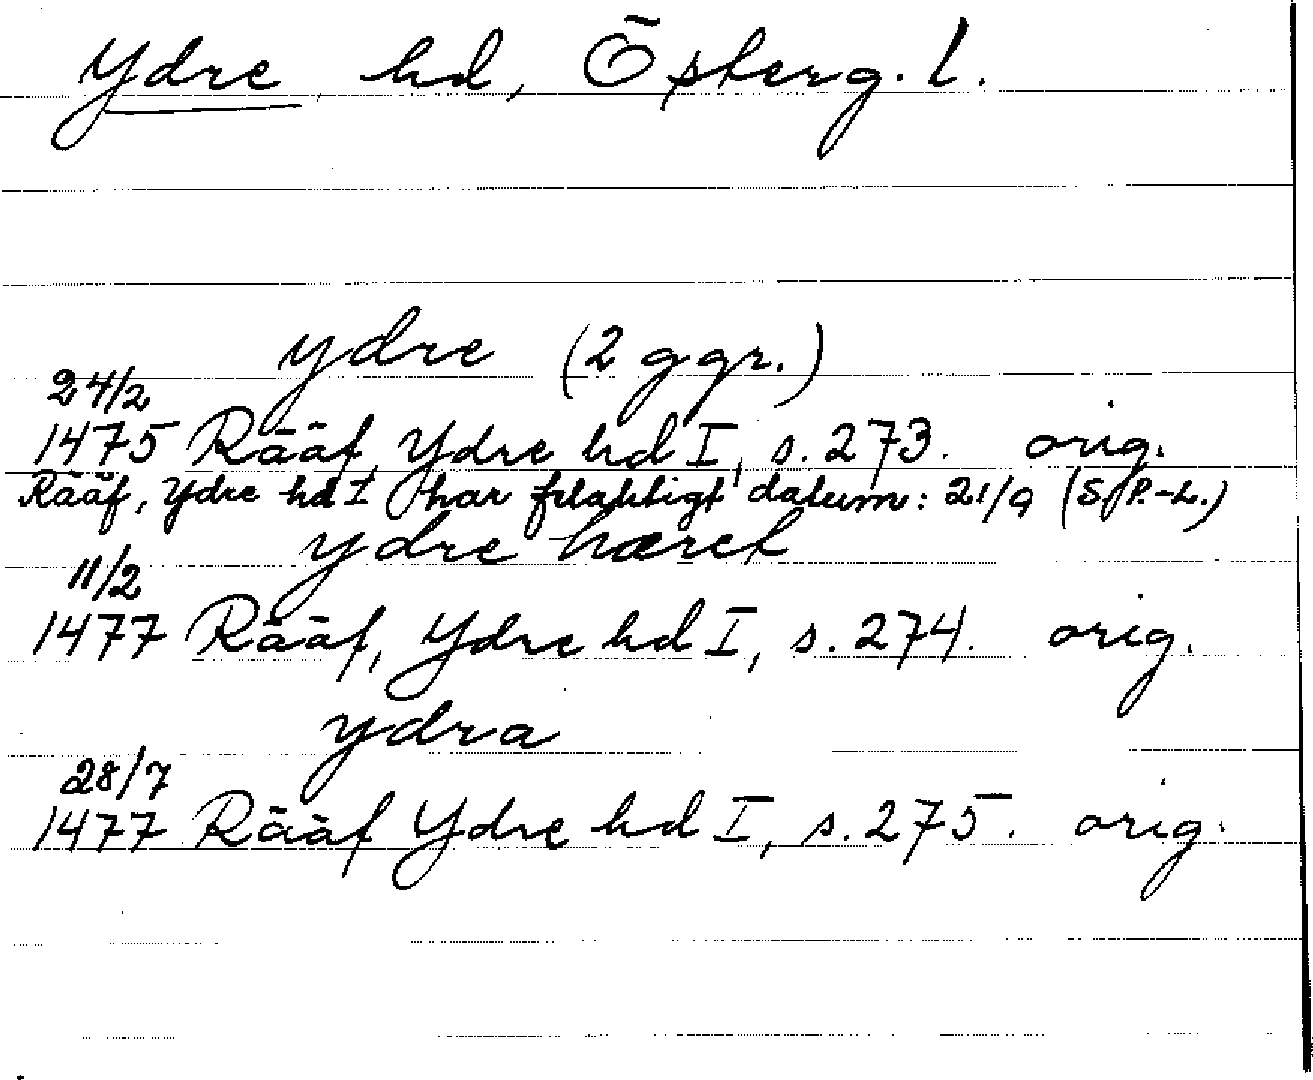 Ydre hd, Österg. l.
ydre (2 ggr.)
24/2
1475 Rääf, Ydre hd I, s. 273. orig.
Rääf, Ydre hd I har felaktigt datum: 21/9 (S. P.-L.)
ydre hæret
11/2
1477 Rääf, Ydre hd I, s. 274. orig.
ydra
28/7
1477 Rääf Ydre hd I, s. 275. orig.